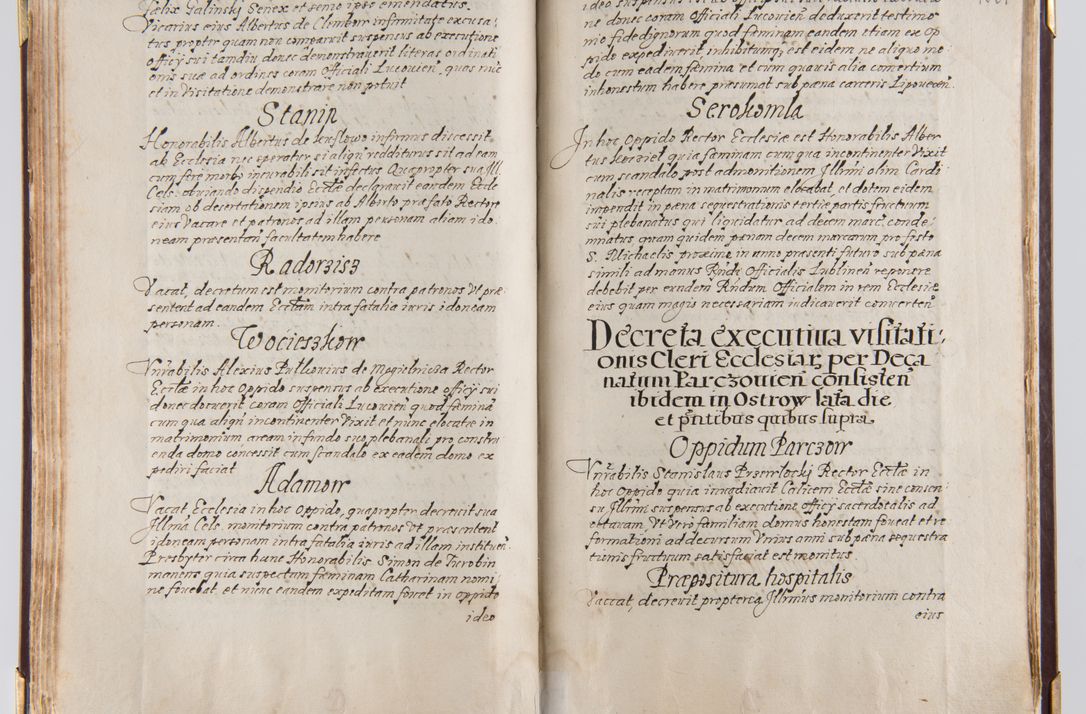 Fœlix Galinski Senex et senio ipse emendatus.
Vicarius eius Albertus de Climbow infirmitate excusa,
tus propter quam non comparuit suspensus ab executione
officÿ sui tamdiu donec demonstraverit literas ordinati
onis suæ ad ordines coram Officiali Lucovien, quas nūc
et in Visitatione demonstrare non potuit
Stanin
Honorabilis Albertus de infirmus discessit
ab Ecclesia nec speratur si aliqn redditurus sit ad eam
cum fere morbo incurabili sit infectus Quapropter sua Ill
Cels. obviando dispendio Ecclæ declaravit eandem Eccle
siam ob desertationem ipsius ab Alberto præfato Rectore
eius Vacare et patronos ad illam personam aliam ido
neam presentan facultatem habere
Radorzisz
Vacat, decretum est monitorium contra patronos Vt præ
sentent ad eandem Ecctam intra fatalia iuris idoneam
personam.
Wocieszkow
Vnrabilis Alexius Pulkovius de Magielnicza Rector
Ecctæ in hoc Oppido suspensus ab executione officÿ sui
donec docuerit coram Officiali Lucovien quod fœminā
cum qua aliqn incontinenter Vixit et nunc elocatæ in
matrimonium aream in fundo suo plebanali pro constru
enda domo concessit cum scandalo ex eadem domo ex
pediri faciat
Adamow
Vacat Ecclesia in hoc Oppido, quapropter decrevit sua
Jllma Cels. monitorium contra patronos Vt præsentent
idoneam personam intra fatalia iuris ad illam instituen.
Presbyter circa hanc Honorabilis Simon de Turobin
manens quia suspectam fœminam Catharinam nomi
ne fovebat, et nunc eandem expeditam fovet in oppido
ideo
ne donec coram Officiali Lucovien deduxerit testimo
nio fidedignorum quod fœminam eandem etiam ex Op
pido expedinerit, inhibitumq; est eidem ne aliquo mo
do cum eadem fœmina et cum quavis alia comertium
inhonestum habere præsumat sub pæna carceris Lipovecen.
Serokomla
Jn hoc Oppido Rector Ecclesiæ est Honorabilis Alber
tus Koraziel quia fæminam cum qua incontinenter Vixit
cum scandalo post admonitionem Jllmi olim Cardi
nalis receptam in matrimonium elocabat, et dotem eidem
impendit in pæna sequestrationis tertiæ partis fructuum
sui plebanatus qui liquidatur ad decem marc. conde,
mnatus, quam quidem pænam decem marcarum pro festo
S. Michaelis proximo in anno præsenti futuro sub pæna
simili ad manus Rndi Officialis Lublinen reponere
debebit per eundem Rndum Officialem in rem Ecclesiæ
eius quam magis necessariam iudicauerit convertēn
Decreta executiua visitati,
onis Cleri Ecclesiar, per Deca
natum Parczouien consisten
ibidem in Ostrow lata die
et pntibus quibus supra.
Oppidum Parczow
Vnrabilis Stanislaus Przewlocki Rector Ecctæ in
hoc Oppido quia inuadiauit Calicem Ecctæ sine consen
su Jllrmi suspensus ab executione officÿ sacerdotalis ad
octauam, Vt Vero familiam domus honestam foueat et re
formationi ad decursum Vnius anni sub pæna sequestra
tionis fructuum satisfaciat est monitus
Præpositura hospitalis
Vaccat, decreuit propterea Jllrmus monitorium contra
eius